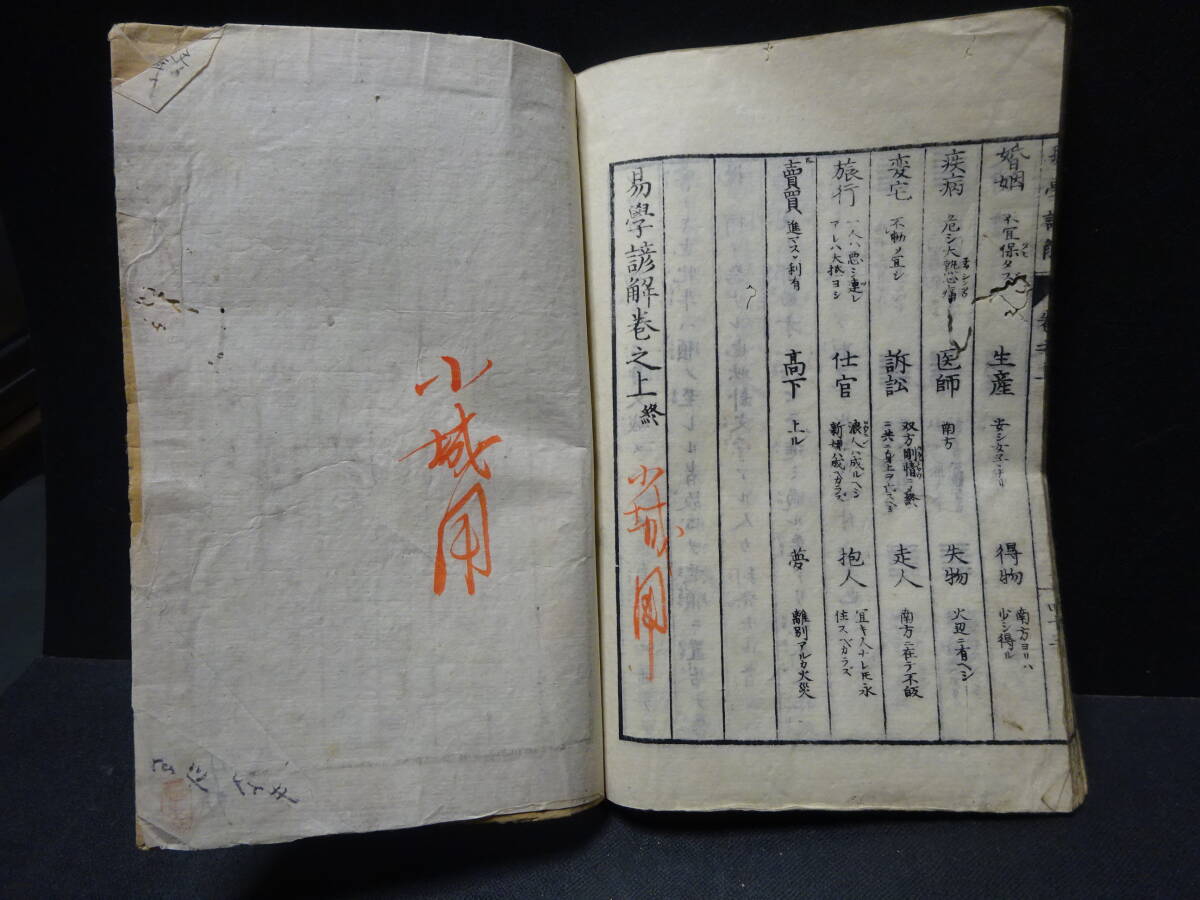 婚姻 不宜保タズ 生産 安シ女子ナリ 得物 南方ヨリハ少シ得ル
疾病 危シ大熱心痛 医師 南方 失物 火辺ニ有ヘシ
変宅 不動ヲ宜シ 訴訟 双方剛情ニメ終ニ共ニ身上ヲ亡スヘシ 走人 南方ニ在テ不皈
旅行 一人ハ悪シ連レアレハ大抵ヨシ 仕官 浪人ハ成ルヘシ 抱人 宜キ人ナレ𪜈永住スベカラズ
賣買 進マスメ利有 高下 上ル 夢 離別アルカ火災
易學諺解巻之上終
小城用
小城用